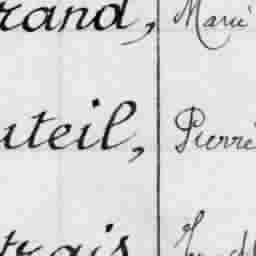 rand, Marie
uteil, Pierre
trais